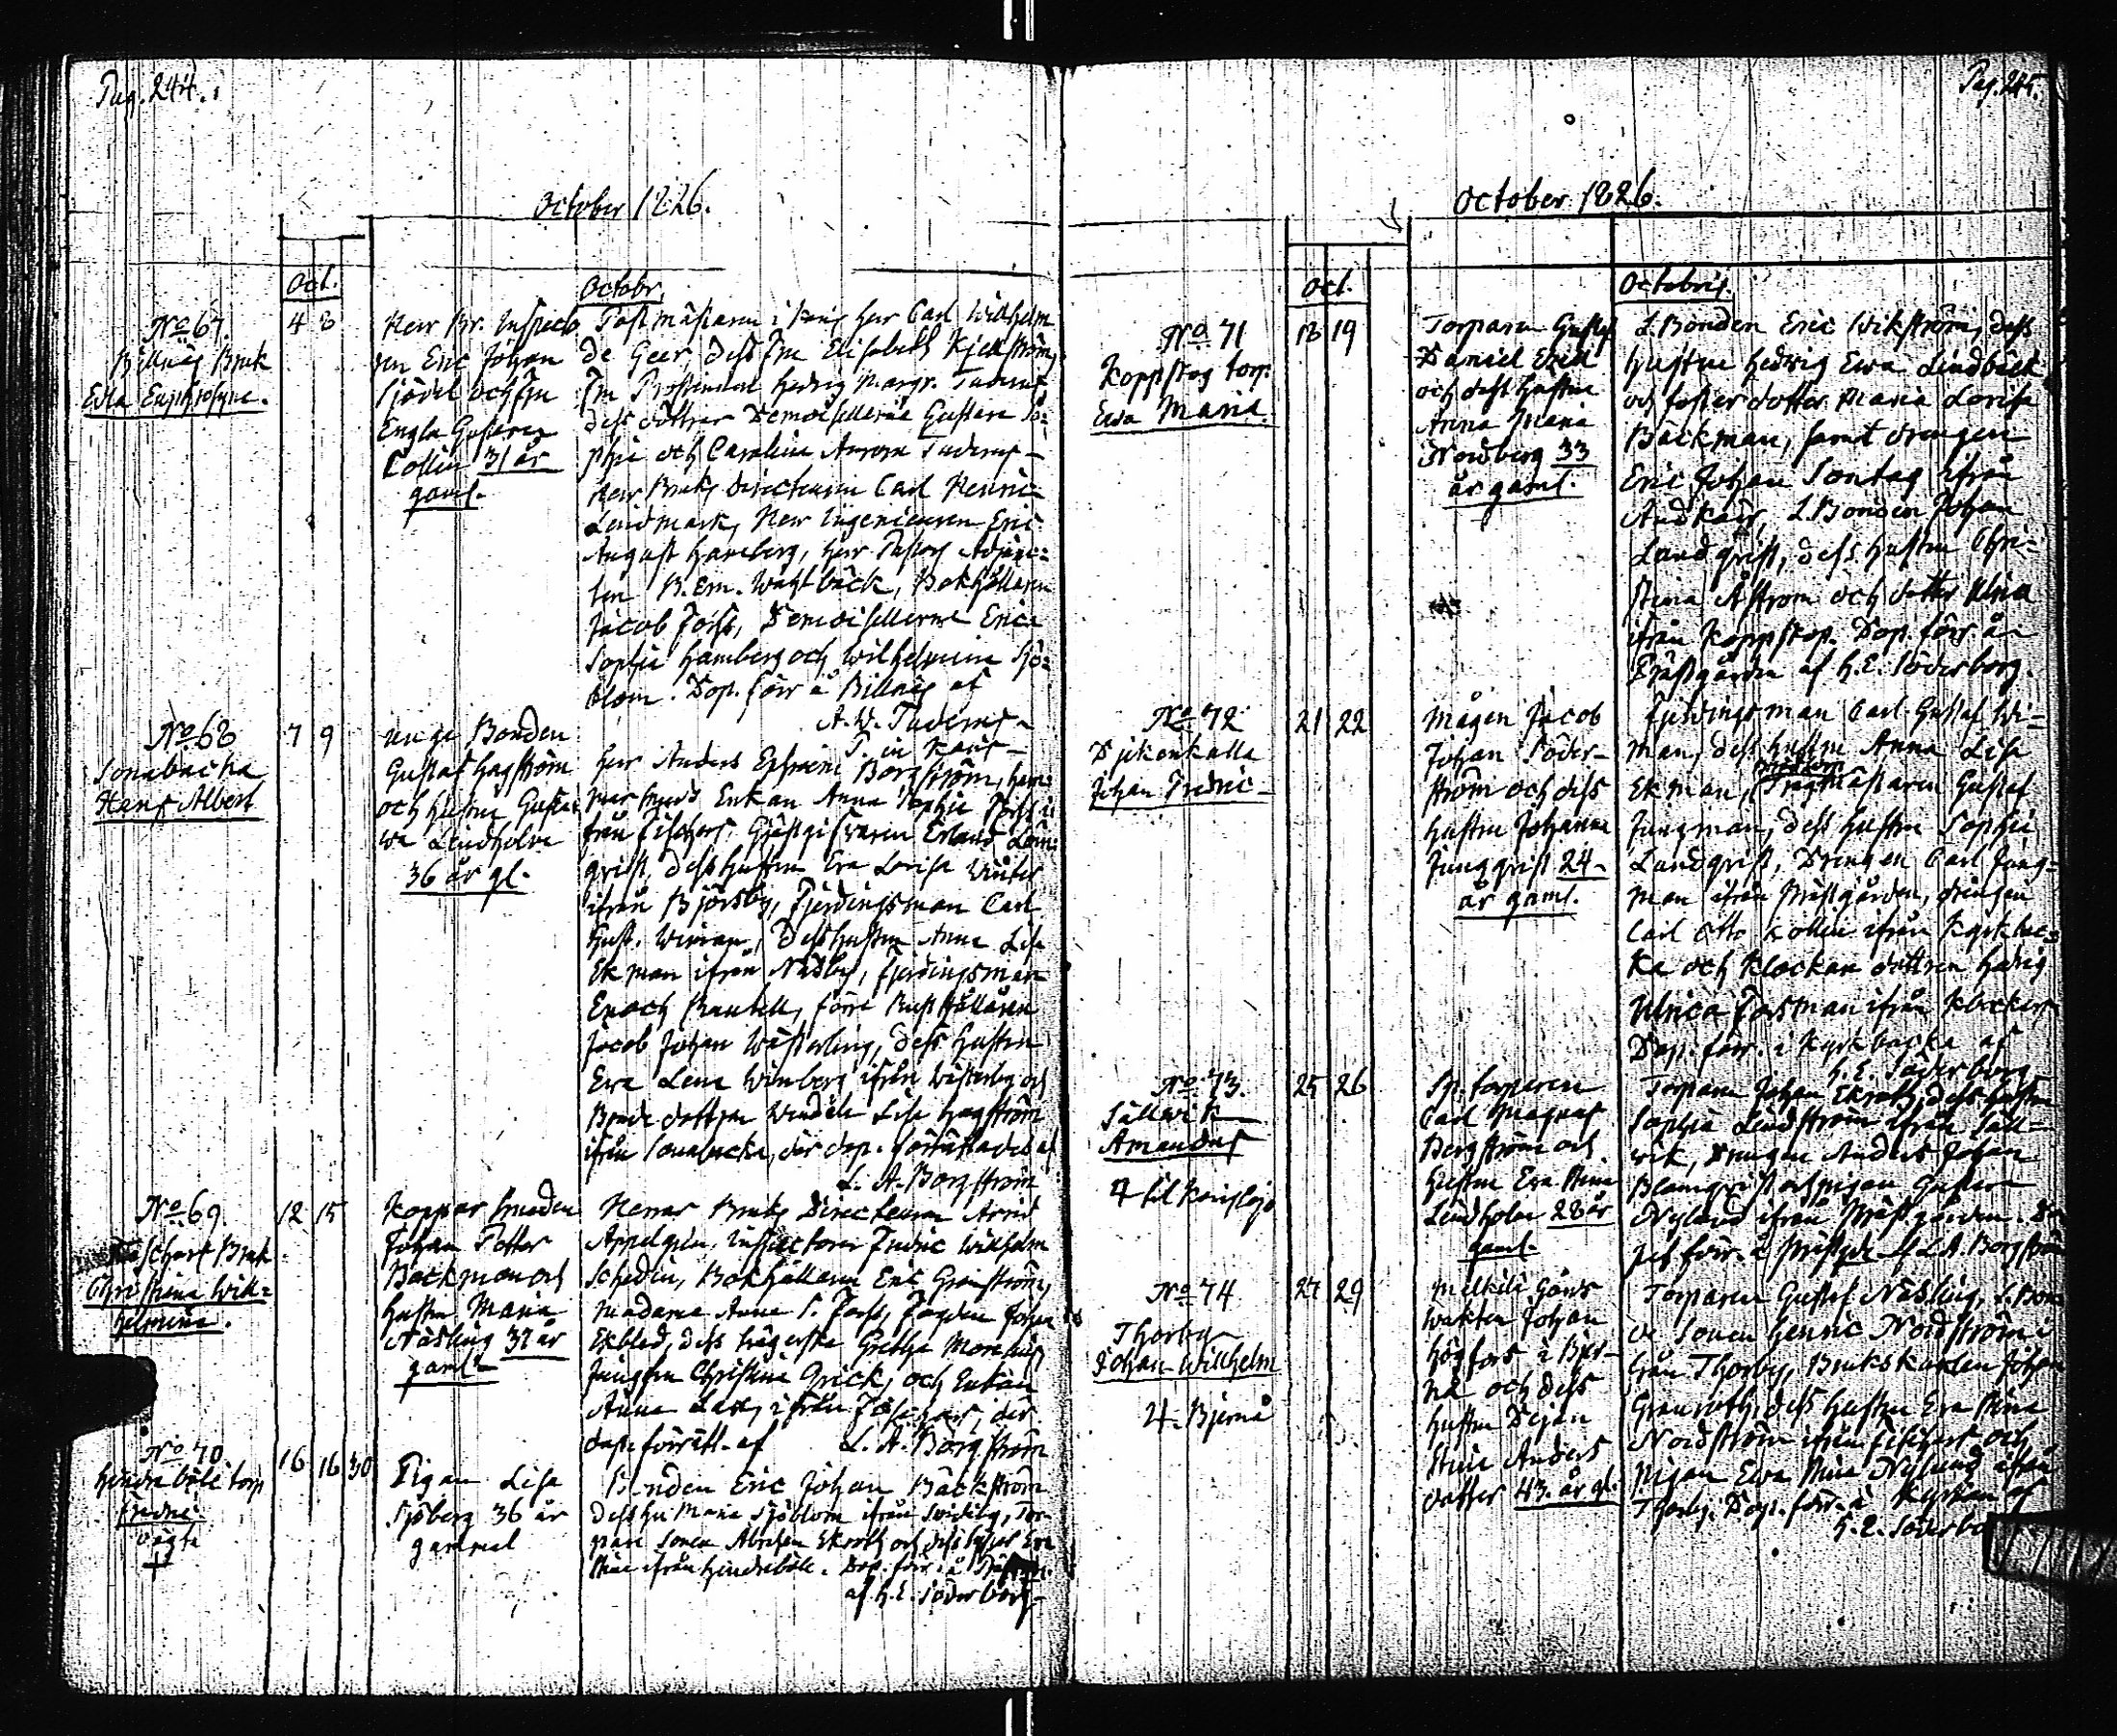 Pag. 244.
October 1826.
Oct.
Octobr.
No 67.
Billnäs Bruk
Edla Euphrosyne.
4 8
Herr Br. Inspecto
ren Eric Johan
Sjödel och Fru
Engla Gustava
Collin 31 år
gaml.
Postmästaren i Karis Herr Carl Wilhelm
de Geer, dess Fru Elisabeth Kjellström,
Fru Prostinnan Hedvig Margr. Tuderus
dess döttrar Demoisellerna Gustava So-
phie och Carolina Aurora Tuderus –
Herr Bruks Directeuren Carl Henric
Lindmark, Herr Ingenieuren Eric
August Hamberg, Herr Pastors Adjunc-
ten B. Em. Wahlbäck, Bokhållaren
Jacob Forss, Demoisellerne Erica
Sophie Hamberg och Wilhelmina Sjö-
blom. Dop. förr. å Billnäs af
A. W. Tuderus
P. in Karis
No 68
Sonabacka
Hans Albert
7 9
unge Bonden
Gustaf Hagström
och hustru Gusta
va Lindholm
36 år gl.
Herr Anders Ephraim Borgström, ham-
mar smeds Enkan Anna Sophie Forss i
från Fischars. Gjästgifvaren Erland Löm-
qvist, dess hustru Eva Lovisa Winter
ifrån Björsby, Fjerdingsman Carl
Gust. Wiman, dess hustru Anna Lisa
Ekman ifrån Näsby, fjerdingsman
Enoch Brunbell, förre Rusthållaren
Jacob Johan Wästerling, dess hustru
Eva Lena Winberg ifrån Wästerby och
Bonde dottren Wendela Lisa Hagström
ifrån Sonabacka, der dop. förrättades af
L. A. Borgström
No 69
Fischars Bruk
Christina Wil-
helmina.
12 15
Koppar smeden
Johan Petter
Backman och
hustru Maria
Näsling 37 år
gaml.
Herrar Bruks Directeuren Arvid
Appelgren, Inspectoren Fredric Wilhelm
Schedin, Bokhållaren Eric Granström,
Madame Anna S. Forss, Fogden Johan
Ekblad, dess hustru Gretha
Jungfru Christina Grick, och Enkan
Anna ifrån Fischars, der
dop. förrätt. af L. A. Borgström
No 70
Hindrabölе torp
Fredric
oägta
16 16 30
Pigan Lisa
Sjöberg 36 år
gammal
Bonden Eric Johan Bäckström
dess hu Maria Sjöblom ifrån Svidiby, Tor-
pare sonen Abraham Ekroth och dess syster Eva
Stina ifrån Hindraböle. Dop. förr. å Prästg.
af H. E. Söderborg
Pag. 245.
October 1826.
Oct.
Octobris.
No 71
Koppskog torp.
Eva Maria.
18 19
Torparen Gustaf
Daniel Ekell
och dess hustru
Anna Maria
Nordberg 33
år gaml.
L. Bonden Eric Wikström, dess
hustru Hedvig Eva Lindbäck
och foster dotter Maria Lovisa
Bäckman, samt drengen
Eric Johan Sontag ifrån
Andkärr, L. Bonden Johan
Landqvist, dess hustru Chri-
stina Åström och dotter Ulrica
ifrån Koppskog. Dop. förr å
Prästgården af H. E. Söderborg.
No 72
Djekenkulla
Johan Fredric
21 22
Mågen Jacob
Johan Söder-
ström och dess
hustru Johanna
Jungqvist 24
år gaml.
Fjerdingsman Carl Gustaf Wi-
man, dess hustru Anna Lisa
Ekman, mästaren Gustaf
Jungman, dess hustru Sophia
Landqvist, Drengen Carl Jung-
man ifrån Prästgården, drengen
Carl Otto Kollin ifrån Kyrkbac-
ka och Klockare dottren Hedvig
Ulrica Forsman ifrån Klockars
Dop. förr. i Kyrkbacka af
H. E. Söderborg
No 73.
Sällvik
Amandus
4 til Karislojo
25 26
Sp. torparen
Carl Magnus
Bergström och
hustru Eva Stina
Lindholm 28 år
gaml.
Torparen Johan Ekroth, dess hustru
Sophia Lindström ifrån Säll-
vik, Drengen Anders Johan
Blomqvist och pigan Gustava
Nylund ifrån Prästgården. Do
pet förr. å Prästgdn af L. A. Borgström
No 74
Thorby
Johan Wilhelm
4. Bjernå
27 29
Melkilä Gårds
wakten Johan
Högfors i Bjer-
nå och dess
hustru Dejan
Stina Anders
dotter 43 år gl.
Torparen Gustaf Näsling, L. Bon
de Sonen Henric Nordström i
från Thorby, Brukskarlen Johan
Granroth, dess hustru Eva Stina
Nordström ifrån Fischars och
pigan Eva Stina Nylund ifrån
Thorby. Dop. förr. i Kyrkan af
H. E. Söderbo